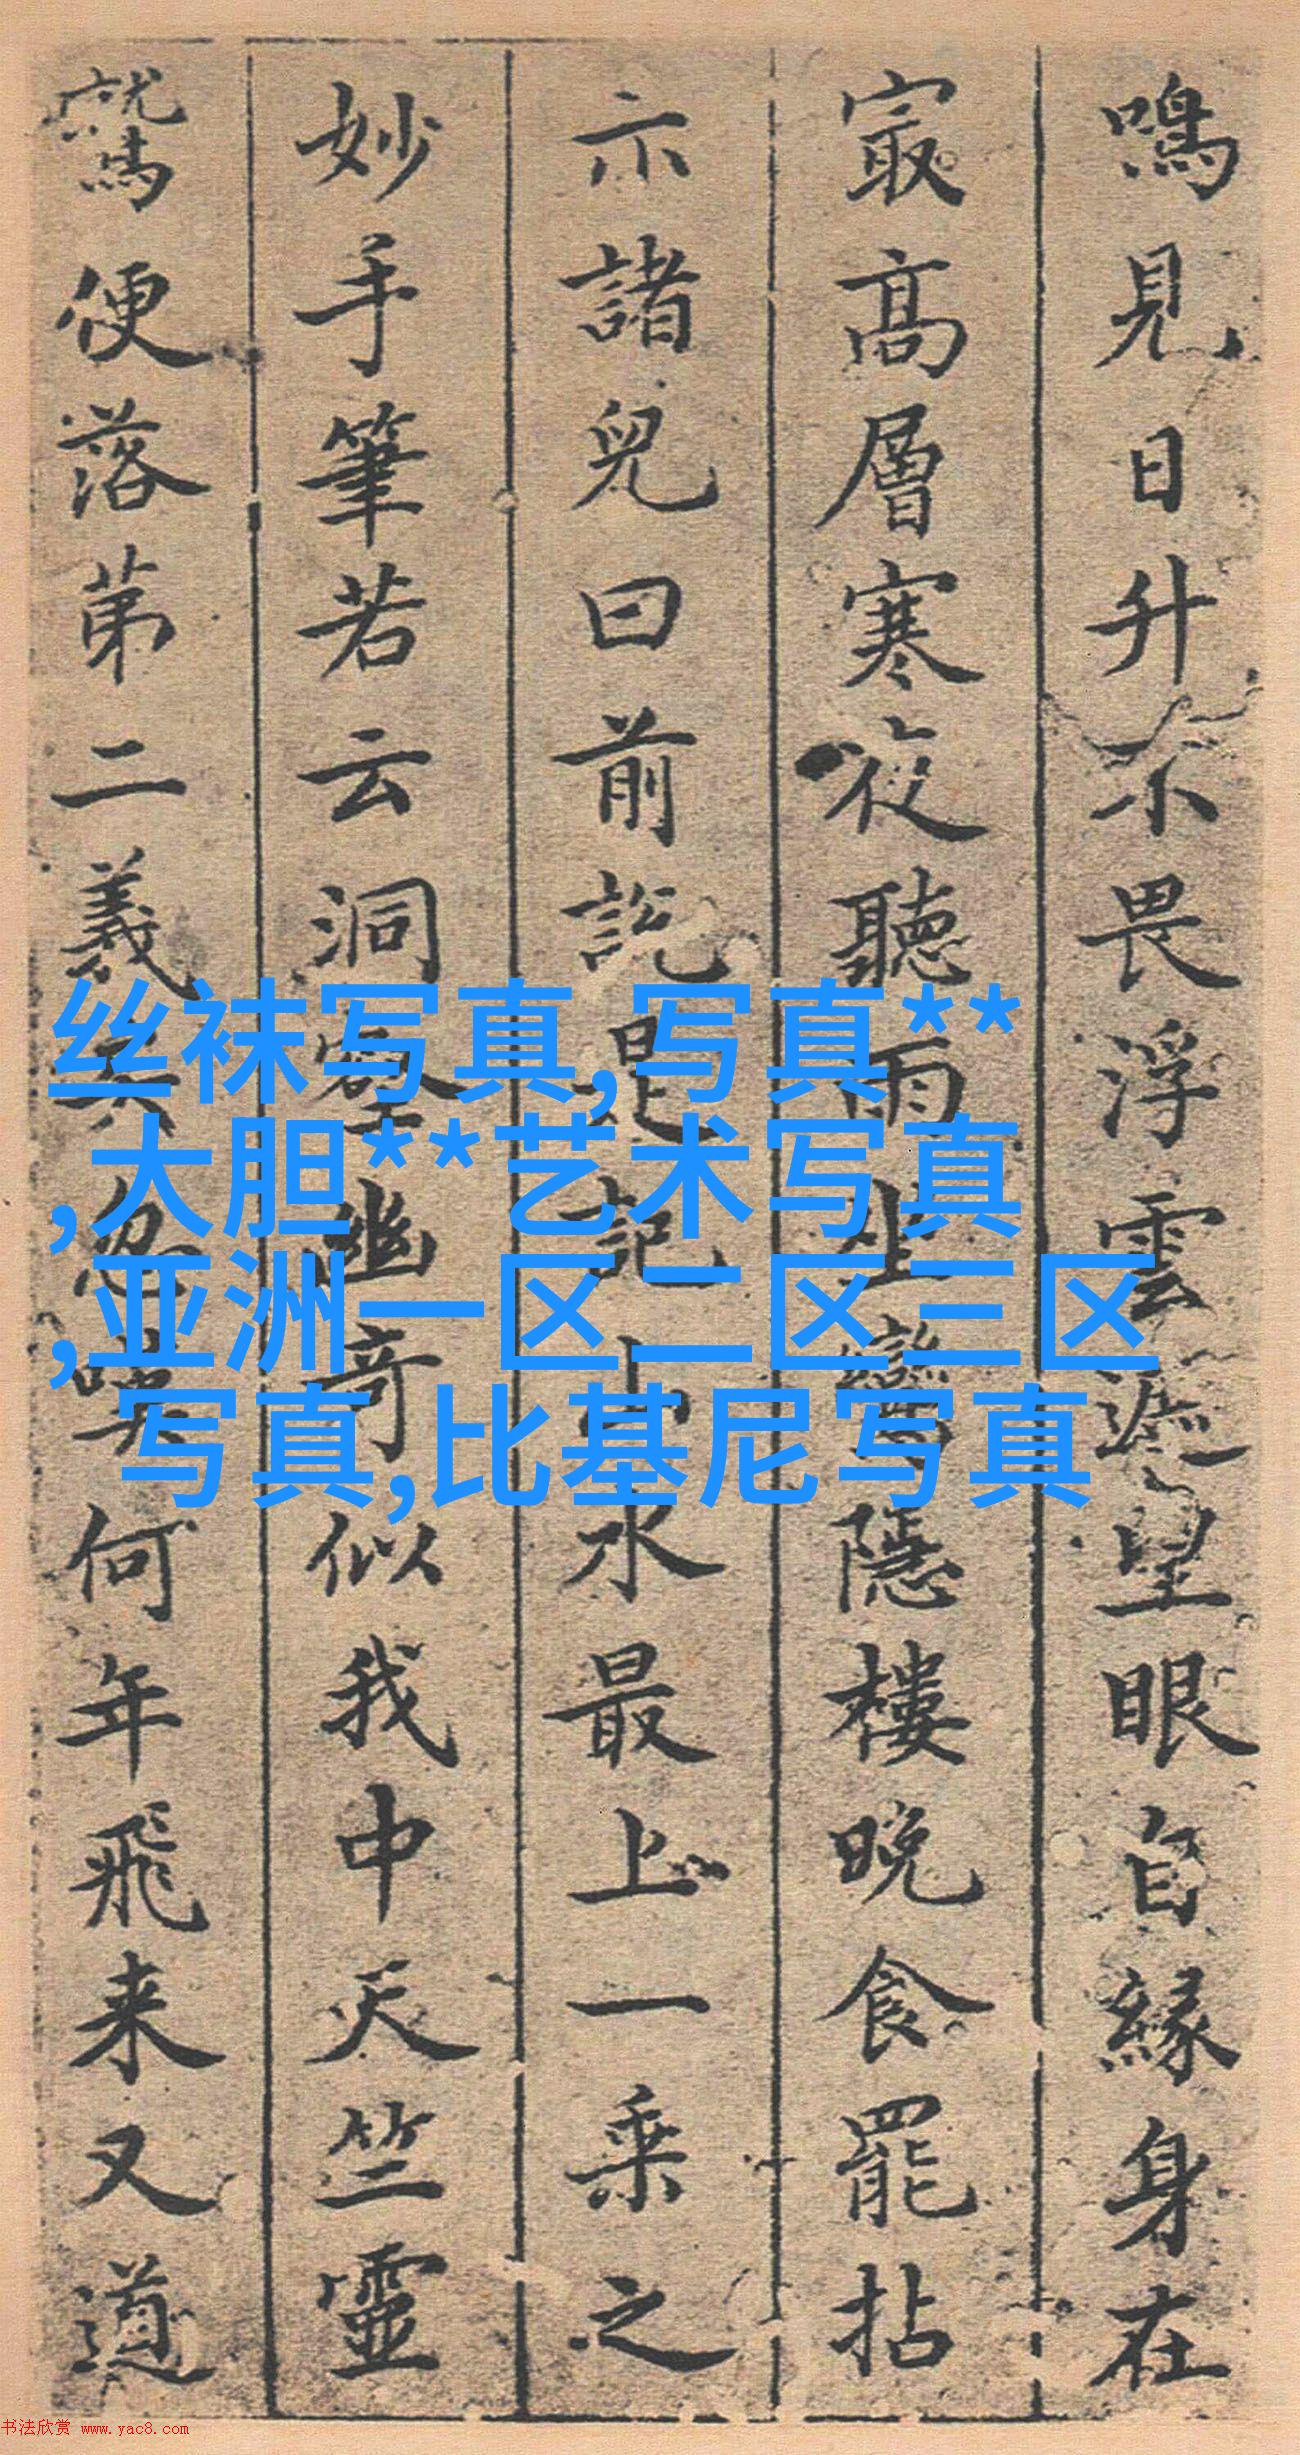 鳴見日升不畏浮雲遮望眼自緣身在
最高層寒夜聽雨坐隱樓晚食罷拈
示諸兒曰前説是記山水最上一乘之
妙手筆若云洞壑幽奇似我中天竺靈
鷲便落第二義矣忽嘆何年飛来又道
丝袜写真,写真**
,大胆**艺术写真
,亚洲一区二区三区
写真,比基尼写真
书法欣赏 www.yac8.com